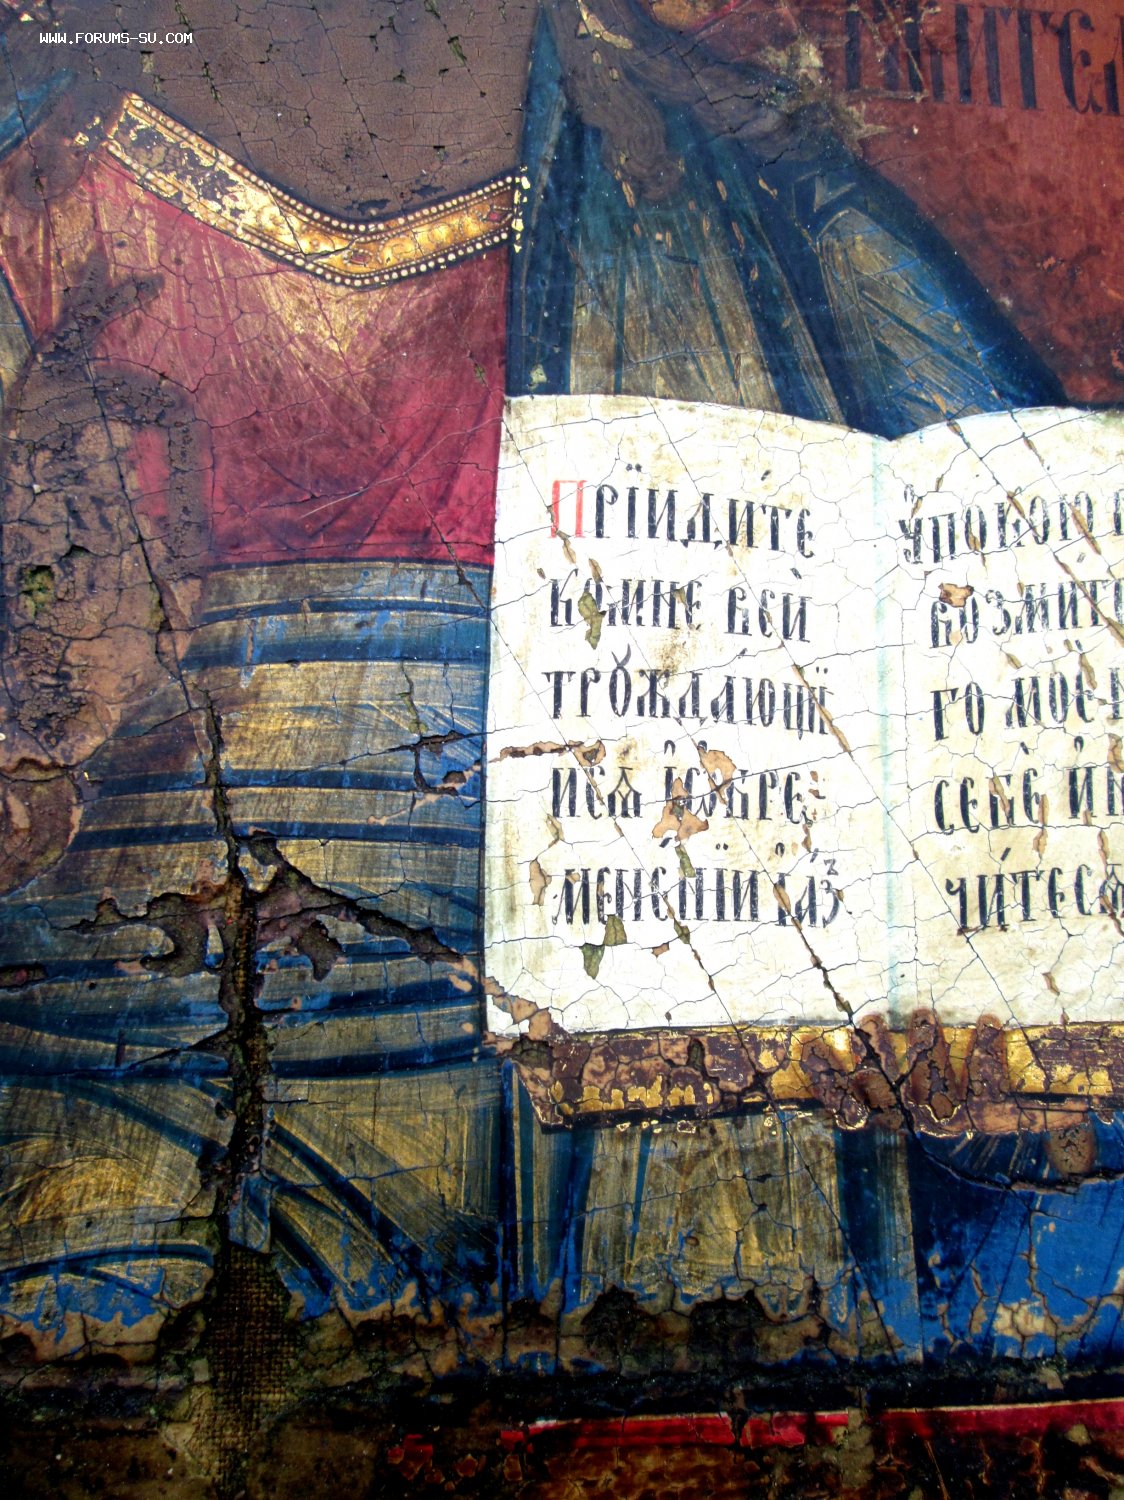 WWW.FORUMS-SU.COM
ПРЇИДИ́ТЕ
КОМНЕ ВСЍ
ТРꙊЖДА́ЮЩЇ
ИСѦ И҆ѠБРЕ
МЕНЄ́НЇИ И҆А́ЗЪ
УПОКОЮ
ВОЗМИ́ТЕ
ГО МОЕ
СЕБЀ И҆
ЧИ́ТЕСѦ